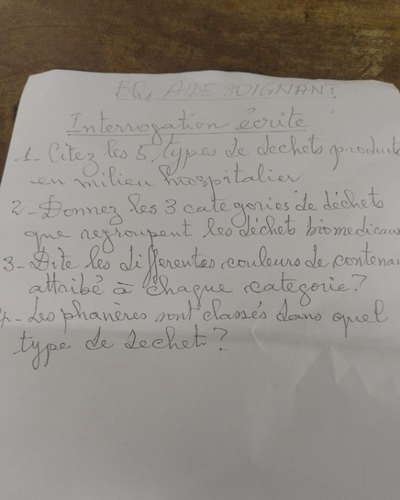 BQ, AIDE SOIGNANT
Interrogation écrite
1- Citez les 5 types de dechets produits
en milieu hospitalier
2- Donnez les 3 categories de déchets
que regroupent les déchet biomedicaux
3- Dite les differentes couleurs de contenan
attribé à chaque categorie?
4- Les phanères sont classés dans quel
type de dechet?